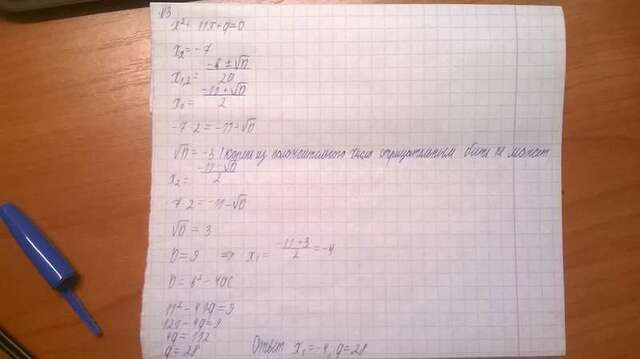 √3
x²+ 11x+q=0
x₂= -7
x₁,₂= -b ± √D / 2a
x₁= -11+√D / 2
-7·2 = -11+√D
√D = -3 (корень из положительного числа отрицательным быть не может
x₂= -11-√D / 2
-7·2 = -11-√D
√D = 3
D = 9 => x₁= -11+3 / 2 = -4
D = b² - 4ac
11² - 4·1q = 9
121 - 4q = 9
4q = 112
q = 28 Ответ x₁ = -4, q = 28